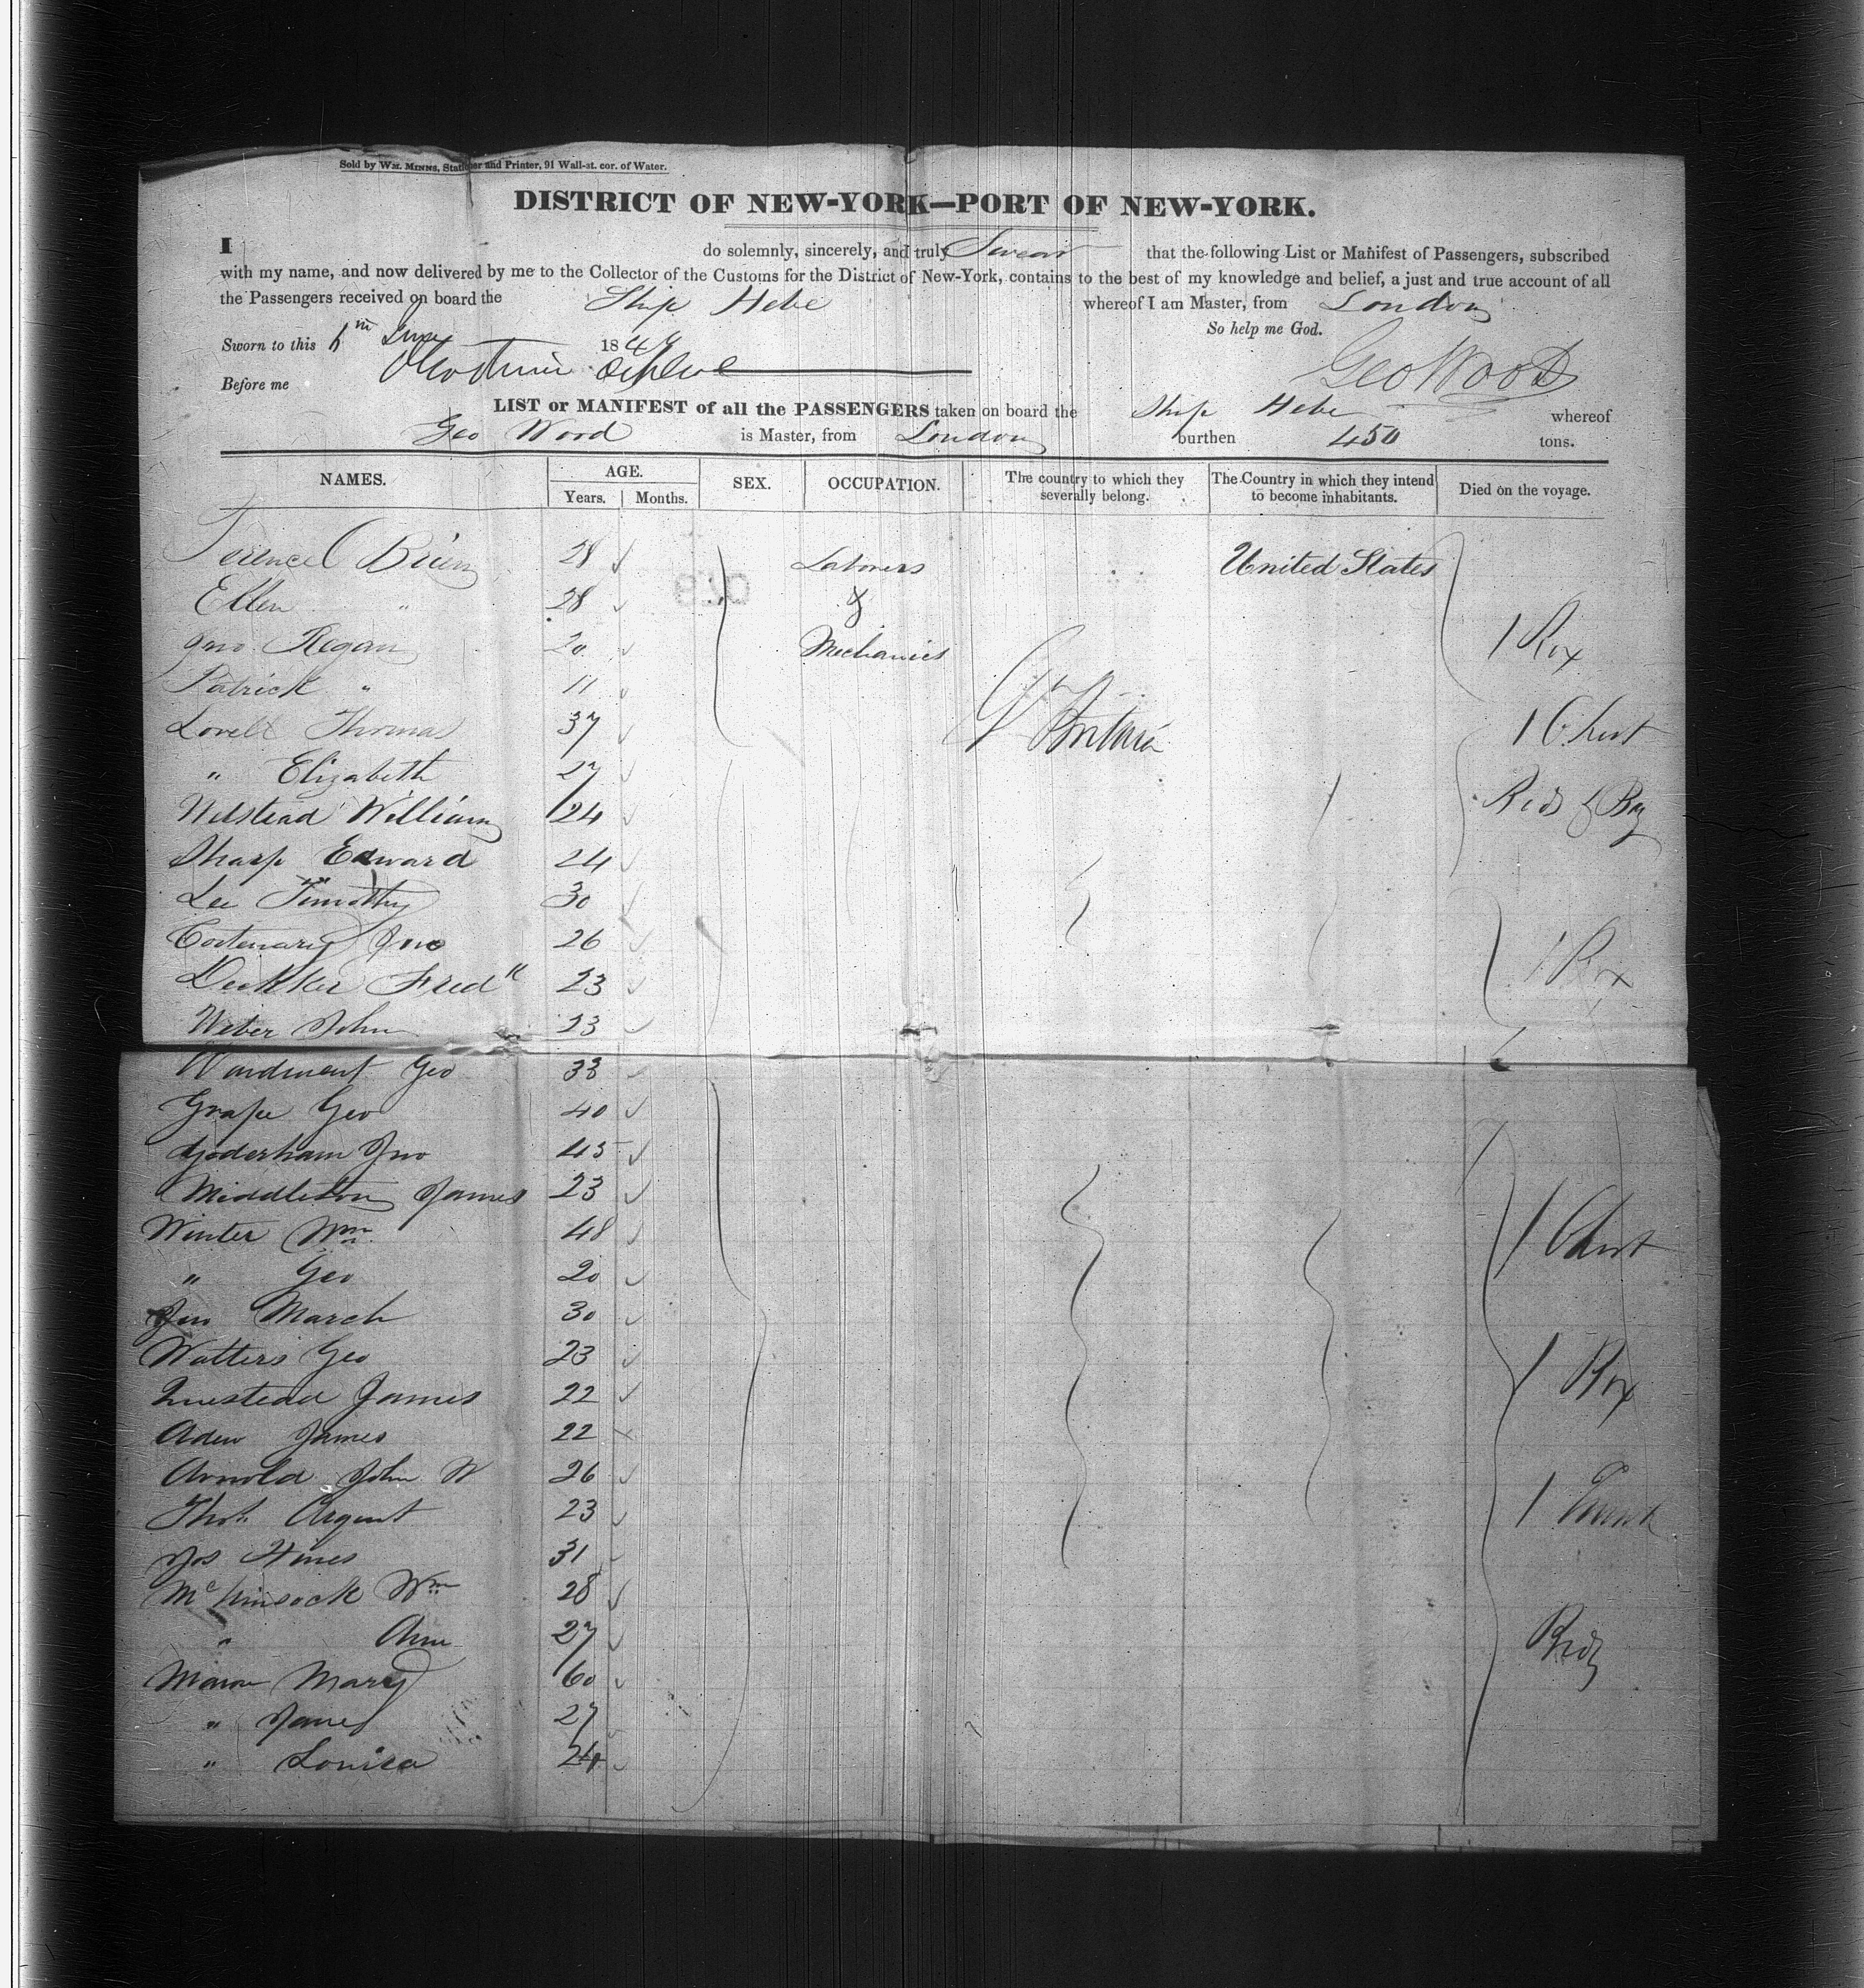 Sold by WM. MINNS, Stationer and Printer, 91 Wall-st. cor. of Water.
DISTRICT OF NEW-YORK—PORT OF NEW-YORK.
I do solemnly, sincerely, and truly Swear that the following List or Manifest of Passengers, subscribed
with my name, and now delivered by me to the Collector of the Customs for the District of New-York, contains to the best of my knowledge and belief, a just and true account of all
the Passengers received on board the Ship Hebe whereof I am Master, from London
So help me God.
Sworn to this June 1849
Geo Wood
Before me
LIST or MANIFEST of all the PASSENGERS taken on board the Ship Hebe whereof
Geo Wood is Master, from London burthen 450 tons.
NAMES. AGE. SEX. OCCUPATION. The country to which they severally belong. The Country in which they intend to become inhabitants. Died on the voyage.
Years. Months.
Terence O Brien 28 Laborers United States
Ellen " 28 &
Jno Regan 20 Mechanics 1 Box
Patrick " 11
Lovell Thomas 37 Gt Britain 1 Chest
" Elizabeth 27
Welstead William 24 Beds & Bag
Sharp Edward 24
Lee Timothy 30
Jno 26
Fredk 23 1 Box
Weber John 23
Geo 33
Grape Geo 40
Goderham Jno 45
Middleton James 23
Winter Wm 48 1 Chest
" Geo 20
Jno March 30
Watters Geo 23 1 Box
James 22
Aden James 22
Arnold John W 26
Thos Argent 23 1 Trunk
Jos Hines 31
Wm 28
" Ann 27 Bedg
Mary 60
" Jane 27
" Louisa 24